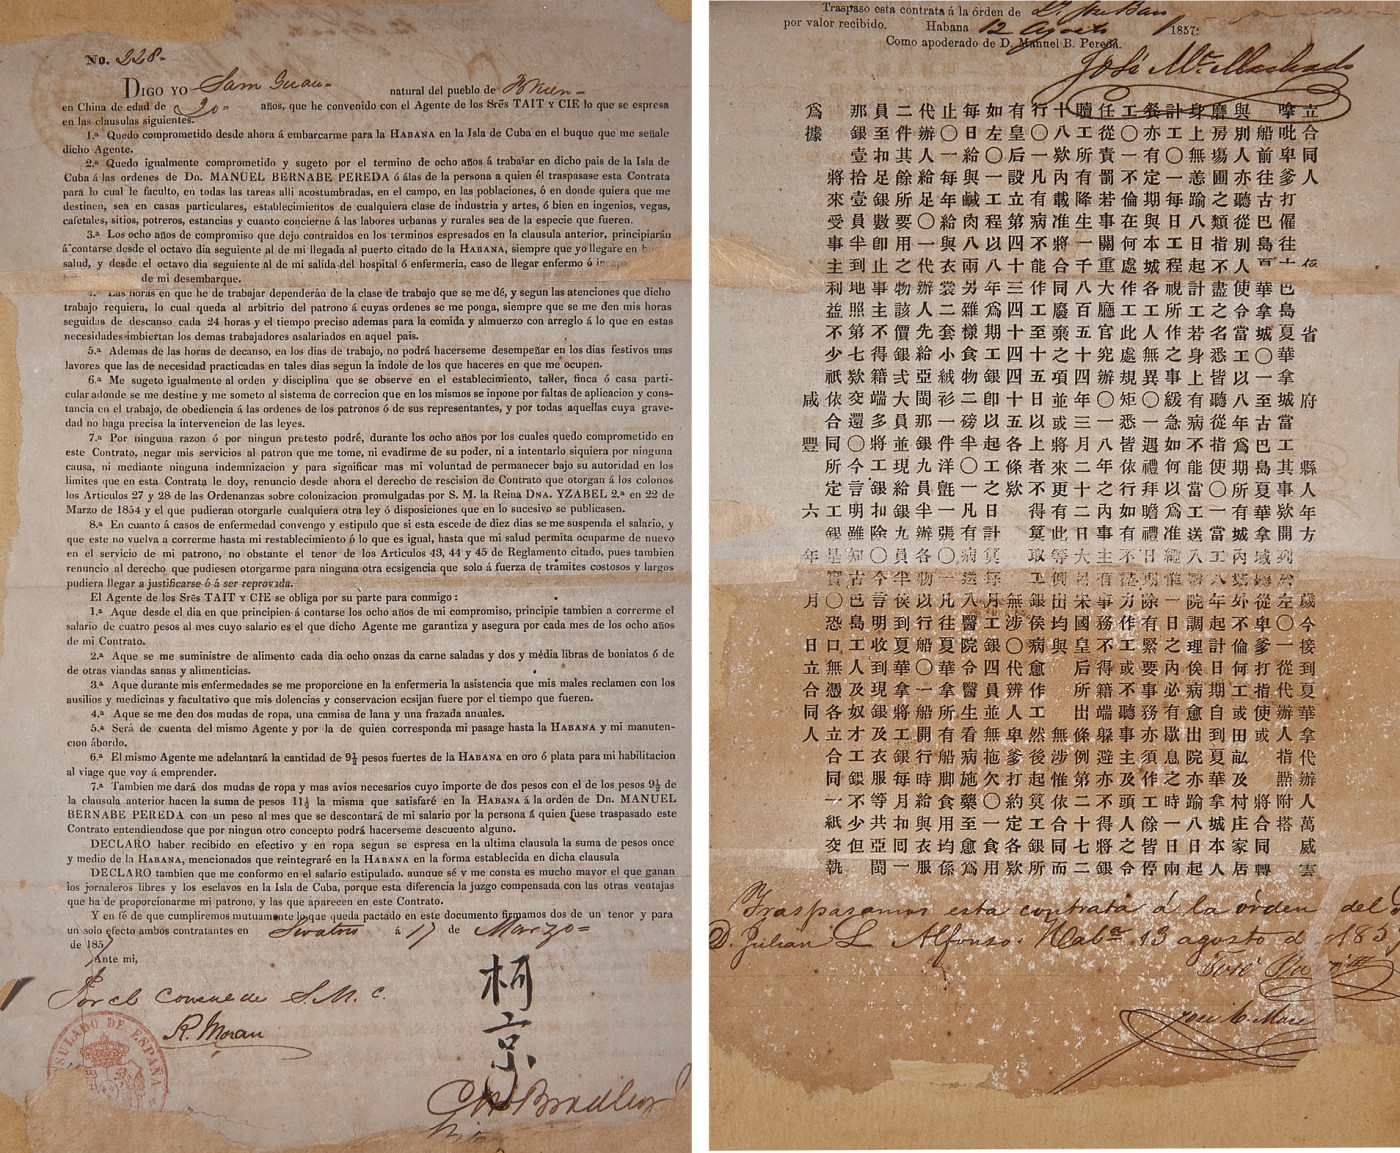 No. 228-
DIGO YO Sam Guau- natural del pueblo de
en China de edad de 20- años, que he convenido con el Agente de los Srēs TAIT Y CIE lo que se espresa
en las clausulas siguientes.
1.ª Quedo comprometido desde ahora á embarcarme para la HABANA en la Isla de Cuba en el buque que me señale
dicho Agente.
2.ª Quedo igualmente comprometido y sugeto por el termino de ocho años á trabajar en dicho pais de la Isla de
Cuba á las ordenes de Dn. MANUEL BERNABE PEREDA ó álas de la persona a quien él traspasase esta Contrata
para lo cual le faculto, en todas las tareas alli acostumbradas, en el campo, en las poblaciones, ó en donde quiera que me
destinen, sea en casas particulares, establecimientos de cualquiera clase de industria y artes, ó bien en ingenios, vegas,
cafetales, sitios, potreros, estancias y cuanto concierne á las labores urbanas y rurales sea de la especie que fueren.
3.ª Los ocho años de compromiso que dejo contraidos en los terminos espresados en la clausula anterior, principiarán
á contarse desde el octavo dia seguiente al de mi llegada al puerto citado de la HABANA, siempre que yo llegare en
salud, y desde el octavo dia seguiente al de mi salida del hospital ó enfermeria, caso de llegar enfermo ó
de mi desembarque.
Las horas en que he de trabajar dependerán de la clase de trabajo que se me dé, y segun las atenciones que dicho
trabajo requiera, lo cual queda al arbitrio del patrono á cuyas ordenes se me ponga, siempre que se me den mis horas
seguidas de descanso cada 24 horas y el tiempo preciso ademas para la comida y almuerzo con arreglo á lo que en estas
necesidades imbiertan los demas trabajadores asalariados en aquel pais.
5.ª Ademas de las horas de decanso, en los dias de trabajo, no podrá hacerseme desempeñar en los dias festivos mas
lavores que las de necesidad practicadas en tales dias segun la indole de los que haceres en que me ocupen.
6.ª Me sugeto igualmente al orden y disciplina que se observe en el establecimiento, taller, finca ó casa parti-
cular adonde se me destine y me someto al sistema de correcion que en los mismos se inpone por faltas de aplicacion y cons-
tancia en el trabajo, de obediencia á las ordenes de los patronos ó de sus representantes, y por todas aquellas cuya grave-
dad no haga precisa la intervencion de las leyes.
7.ª Por ninguna razon ó por ningun pretesto podré, durante los ocho años por los cuales quedo comprometido en
este Contrato, negar mis servicios al patron que me tome, ni evadirme de su poder, ni a intentarlo siquiera por ninguna
causa, ni mediante ninguna indemnizacion y para significar mas mi voluntad de permanecer bajo su autoridad en los
limites que en esta Contrata le doy, renuncio desde ahora el derecho de rescision de Contrato que otorgan á los colonos
los Articulos 27 y 28 de las Ordenanzas sobre colonizacion promulgadas por S. M. la Reina DNA. YZABEL 2.ª en 22 de
Marzo de 1854 y el que pudieran otorgarle cualquiera otra ley ó disposiciones que en lo sucesivo se publicasen.
8.ª En cuanto á casos de enfermedad convengo y estipulo que si esta escede de diez dias se me suspenda el salario, y
que este no vuelva a correrme hasta mi restablecimiento ó lo que es igual, hasta que mi salud permita ocuparme de nuevo
en el servicio de mi patrono, no obstante el tenor de los Articulos 43, 44 y 45 de Reglamento citado, pues tambien
renuncio al derecho que pudiesen otorgarme para ninguna otra ecsigencia que solo á fuerza de trámites costosos y largos
pudiera llegar a justificarse ó á ser reprovada.
El Agente de los Srēs TAIT Y CIE se obliga por su parte para conmigo :
1.ª Aque desde el dia en que principien á contarse los ocho años de mi compromiso, principie tambien a correrme el
salario de cuatro pesos al mes cuyo salario es el que dicho Agente me garantiza y asegura por cada mes de los ocho años
de mi Contrato.
2.ª Aque se me suministre de alimento cada dia ocho onzas da carne saladas y dos y média libras de boniatos ó de
de otras viandas sanas y alimenticias.
3.ª Aque durante mis enfermedades se me proporcione en la enfermeria la asistencia que mis males reclamen con los
ausilios y medicinas y facultativo que mis dolencias y conservacion ecsijan fuere por el tiempo que fueren.
4.ª Aque se me den dos mudas de ropa, una camisa de lana y una frazada anuales.
5.ª Será de cuenta del mismo Agente y por la de quien corresponda mi pasage hasta la HABANA y mi manuten-
cion ábordo.
6.ª El mismo Agente me adelantará la cantidad de 9½ pesos fuertes de la HABANA en oró ó plata para mi habilitacion
al viage que voy á emprender.
7.ª Tambien me dará dos mudas de ropa y mas avios necesarios cuyo importe de dos pesos con el de los pesos 9½ de
la clausula anterior hacen la suma de pesos 11½ la misma que satisfaré en la HABANA á la orden de Dn. MANUEL
BERNABE PEREDA con un peso al mes que se descontará de mi salario por la persona á quien fuese traspasado este
Contrato entendiendose que por ningun otro concepto podrá hacerseme descuento alguno.
DECLARO haber recibido en efectivo y en ropa segun se espresa en la ultima clausula la suma de pesos once
y medio de la HABANA, mencionados que reintegraré en la HABANA en la forma establecida en dicha clausula
DECLARO tambien que me conformo en el salario estipulado, aunque sé y me consta es mucho mayor el que ganan
los jornaleros libres y los esclavos en la Isla de Cuba, porque esta diferencia la juzgo compensada con las otras ventajas
que ha de proporcionarme mi patrono, y las que aparecen en este Contrato.
Y en fé de que cumpliremos mutuamente lo que queda pactado en este documento firmamos dos de un tenor y para
un solo efecto ambos contratantes en Swatow á 17 de Marzo=
de 1857
Ante mi,
Por el Consul de S. M. C.
R. Moran
CONSULADO DE ESPAÑA
柯京
C W Bradley
Traspaso esta contrata á la órden de
por valor recibido. Habana 12 Agosto 1857:
Como apoderado de D. Manuel B. Pereda.
José Ma. Machado
立合同人 係 省 府 縣人年方 歲今接到夏華拿代辦人萬威雲
嗱吡卑爹打僱往古巴島夏華拿城當工其欵開列於左〇一從代辦人指照附搭
船前往古巴島夏華拿城〇一至古巴島夏華拿城域聽從卑爹打指使或將合同轉
與別人亦聽從別人使令當工以八年爲期所有城内城外不倫何工或田畆及村庄家居
磨房塲圃之類指不盡名悉皆聽從指使〇一當工八年起計日期自到夏華拿城本人
身上無恙踰八日起計若身上有病不能當工准送入醫院調理俟病愈出院亦踰八日起
計工〇一每日工程視所作之事緩急如何爲准總能一日之内必有歇息之時一餐兩
餐亦有定期與本城各工人無異〇一遇禮拜瞻禮日期除有緊要事務亦須作工餘皆停
工〇一不倫在何處作工此處規矩悉皆依行如有不盡力作工或不聽事主及頭人之令
任從責罰若事關重大廳官究辦〇一八年之内事主有事務不得藉端躲避亦不得將銀
贖工所有降生一千八百五十四年三月二十二日大呂宋國皇后所出條例第二十七二
十八欵内載准將合同廢棄之項並或將來更有此等例出均與無涉惟依合同而
行〇一凡有病不能作工至十五日以上者不得算取工銀俟病愈作工然後起算所
有皇后設立第四十三四十四四十五各條欵無涉〇代辦人卑爹打約定工各欵
如左〇一工程以八年爲期工銀以起工之日計算每月工銀四員並無拖欠〇一食用
每日給與鹹肉八兩另雜食物二磅半〇一凡有病送入醫院令醫生看病施藥至愈爲
止〇一每年給與衣裳二套小絨衫一件洋氈一張〇一凡往夏華拿所有船脚食用均係
代辦人給足〇一代該人先給亞閩那銀九員半辦各物以行船〇一船開行時給與衣服
二件其餘所要用之物該價銀弍大員並現給銀九員半俟到夏華拿將工銀每月扣回一
員至扣足銀數即止事主不得籍端多將工銀扣除〇今言明收到現銀及衣服等共亞閩
那銀壹拾壹員半到地照第七欵交還合同〇今言明雖知古巴島人及奴才工銀不少但
將來受事主利益不少祇依合同所定工銀是實〇恐口無各立合同一紙交執
爲據 咸豐六年 月 日立合同人
Traspasamos esta contrata á la órden del
D. Julian L. Alfonso. Haba. 13 agosto de 1857
José
José C. Mare